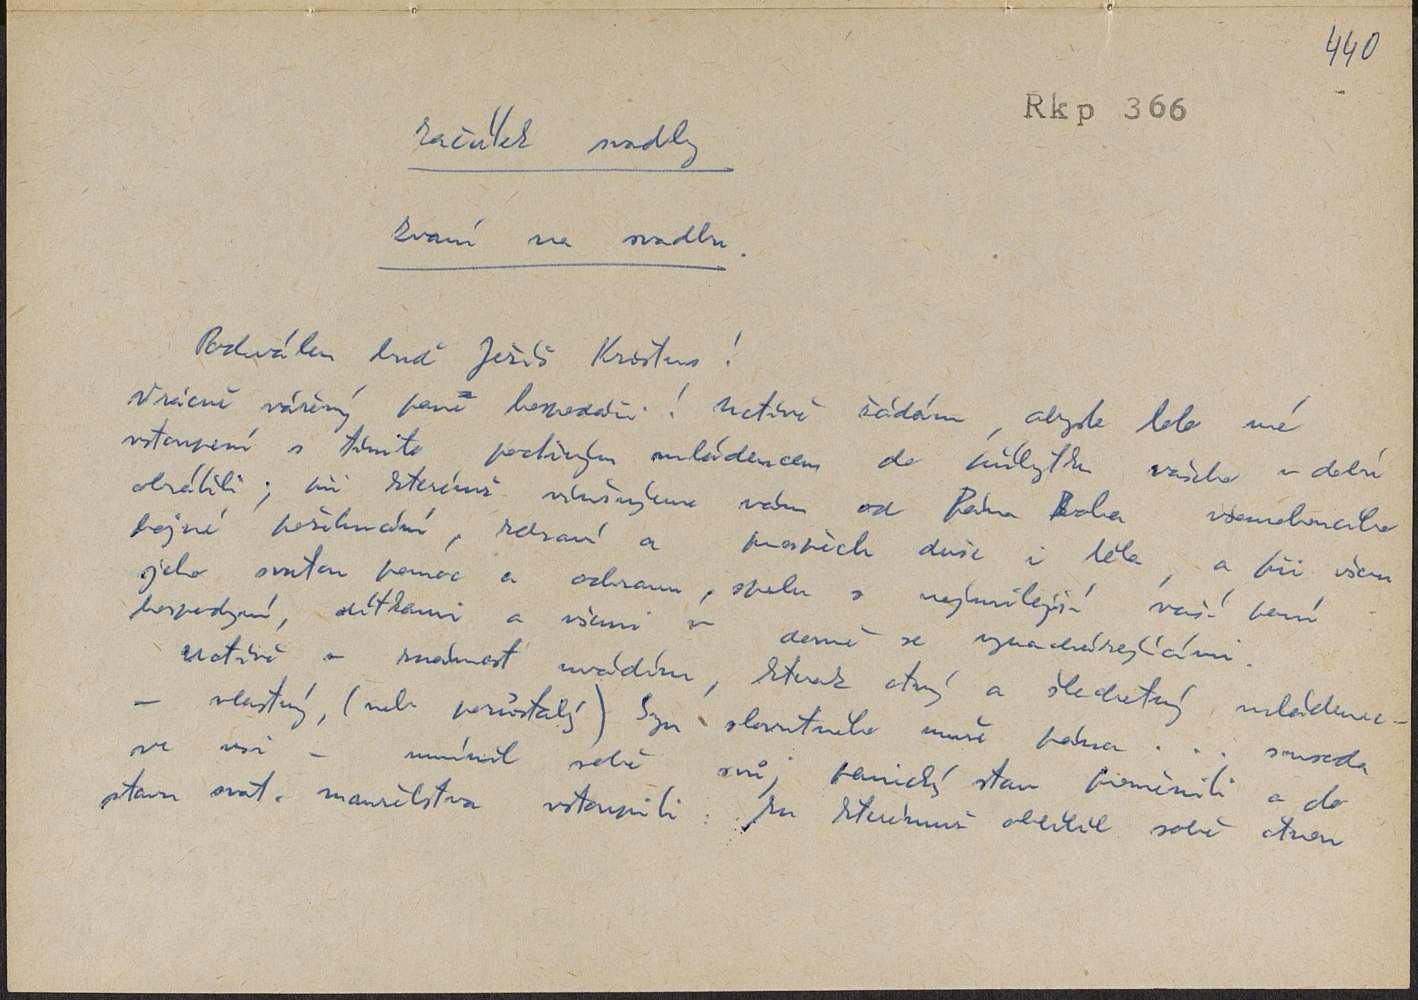 440
Rkp 366
Začátek svadby
Zvaní na svadbu.
Pochválen buď Ježíš Kristus!
Vzácně vážený pane hospodáři! Uctivě žádám, abyste toto mé
vstoupení s tímto poctivým mládencem do příbytku vašeho v dobré
obrátili; při kterémž vinšujeme vám od Pána Boha všemohoucího
hojné požehnání, zdraví a prospěch duše i těla, a při všem
jeho svatou pomoc a ochranu, spolu s nejmilejší vaší paní
hospodyní, dítkami a všemi v domě se vynacházejícími.
Uctivě v známost uvádím, kterak ctný a šlechetný mládenec –
– vlastný, (neb pozůstalý) syn slovutného muže pána . . . souseda
ve vsi – umínil sobě svůj panický stav proměniti a do
stavu svat. manželství vstoupiti. Ku kterémuž oblíbil sobě ctnou